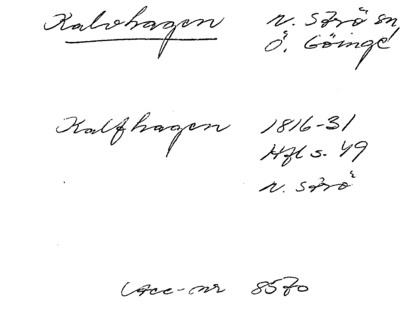 Kalvhagen N. Strö sn,
Ö. Göinge
Kalfhagen 1816-31
Hfl s. 49
N. Strö
Acc-nr 8570